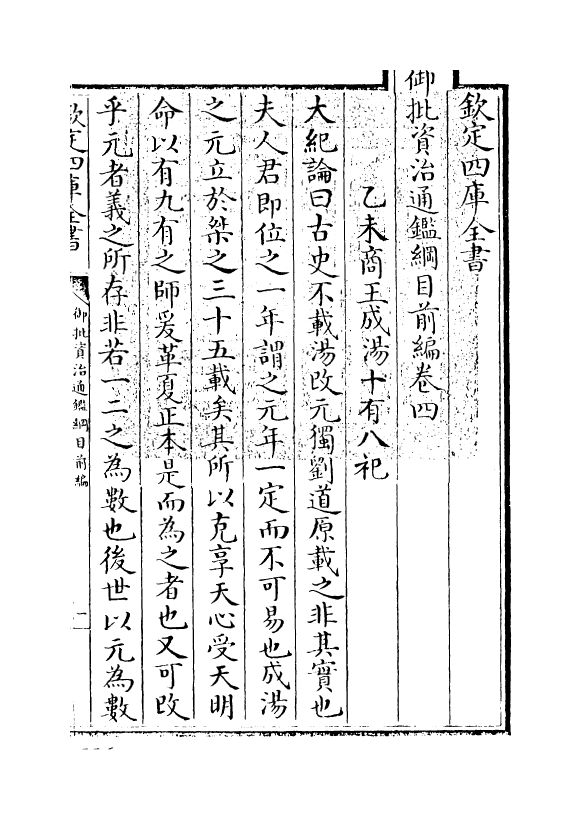 欽定四庫全書
御批資治通鑑綱目前編卷四
乙未商王成湯十有八祀
大紀論曰古史不載湯改元獨劉道原載之非其實也
夫人君即位之一年謂之元年一定而不可易也成湯
之元立於桀之三十五載矣其所以克享天心受天明
命以有九有之師爰革夏正本是而為之者也又可改
乎元者義之所存非若一二之為數也後世以元為數
欽定四庫全書
御批資治通鑑綱目前編
一